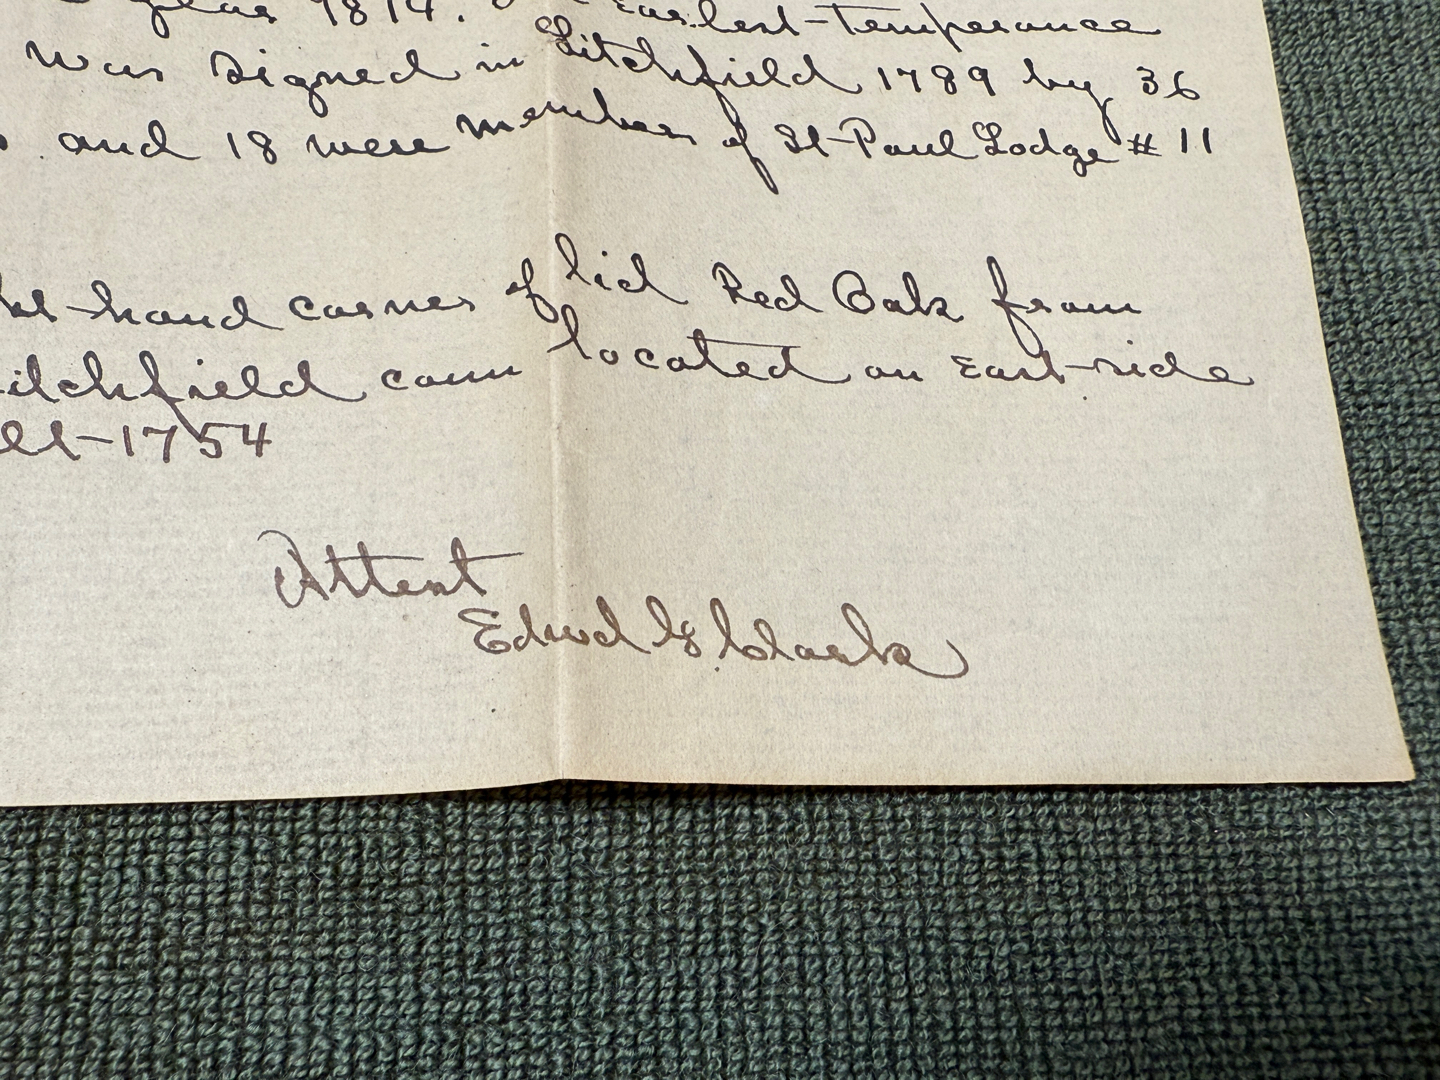 year 1814. Earliest temperance
was signed in Litchfield 1789 by 36
and 18 were members of St Paul Lodge # 11
hand corner of lid Red Oak from
itchfield coun located on East side
1754
Attest
Edwd G. Clark